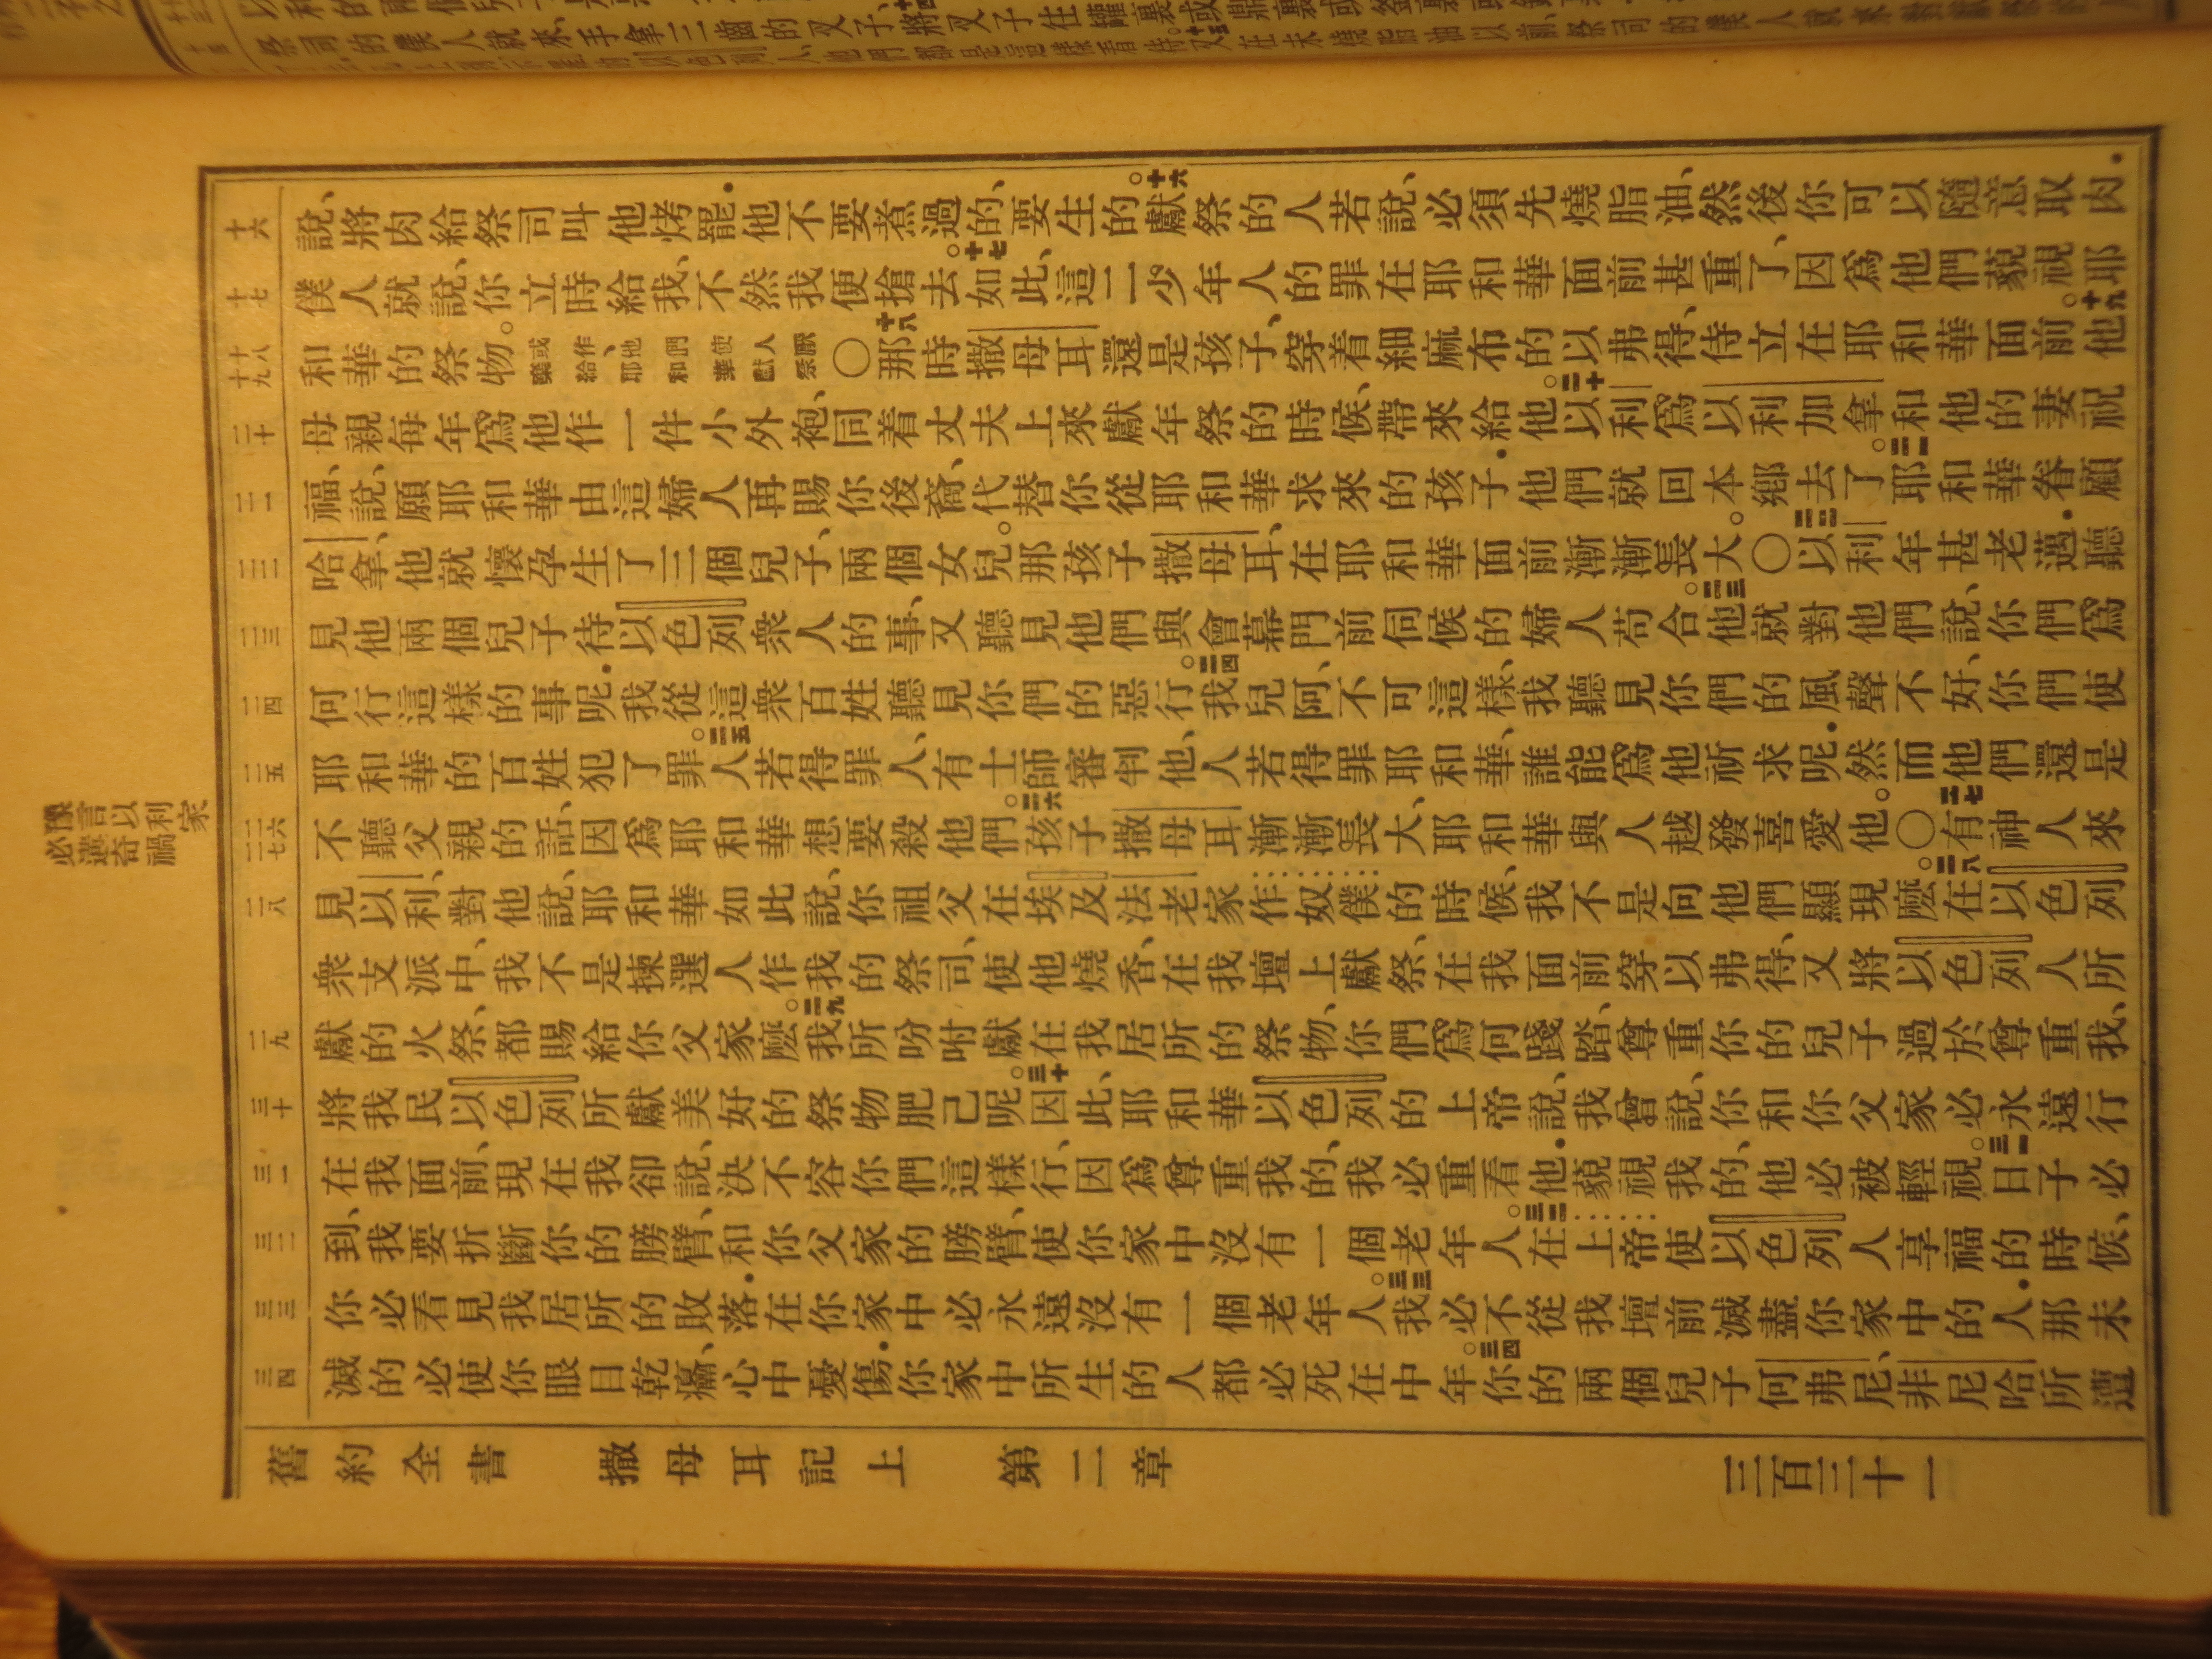 祭司的僕人就來、手拿三齒的叉子、將叉子往罐裏、或鼎裏、
十六 說、將肉給祭司叫他烤罷．他不要煮過的、要生的。十六獻祭的人若說、必須先燒脂油、然後你可以隨意取肉．
十七 僕人就說、你立時給我、不然我便搶去。十七如此、這二少年人的罪在耶和華面前甚重了、因爲他們藐視耶
十八 十九 和華的祭物。或作、他們使人厭棄給耶和華獻祭 ○十八那時撒母耳還是孩子、穿着細麻布的以弗得、侍立在耶和華面前。十九他
二十 母親每年爲他作一件小外袍、同着丈夫上來獻年祭的時候、帶來給他。二十以利爲以利加拿和他的妻祝
二一 福、說、願耶和華由這婦人再賜你後裔、代替你從耶和華求來的孩子．他們就回本鄉去了。二一耶和華眷顧
二二 哈拿、他就懷孕生了三個兒子、兩個女兒。那孩子撒母耳、在耶和華面前漸漸長大。○二二以利年甚老邁．聽
二三 見他兩個兒子待以色列衆人的事、又聽見他們與會幕門前伺候的婦人苟合。二三他就對他們說、你們爲
二四 何行這樣的事呢．我從這衆百姓聽見你們的惡行。二四我兒阿、不可這樣、我聽見你們的風聲不好、你們使
二五 耶和華的百姓犯了罪。二五人若得罪人、有士師審判他、人若得罪耶和華、誰能爲他祈求呢．然而他們還是
二六 二七 不聽父親的話、因爲耶和華想要殺他們。二六孩子撒母耳漸漸長大、耶和華與人越發喜愛他。○二七有神人來
二八 見以利、對他說、耶和華如此說、你祖父在埃及法老家作奴僕的時候、我不是向他們顯現麼。二八在以色列
衆支派中、我不是揀選人作我的祭司、使他燒香、在我壇上獻祭、在我面前穿以弗得、又將以色列人所
二九 獻的火祭、都賜給你父家麼。二九我所吩咐獻在我居所的祭物、你們爲何踐踏、尊重你的兒子過於尊重我、
三十 將我民以色列所獻美好的祭物肥己呢。三十因此、耶和華以色列的上帝說、我曾說、你和你父家必永遠行
三一 在我面前、現在我卻說、決不容你們這樣行、因爲尊重我的、我必重看他．藐視我的、他必被輕視。三一日子必
三二 到、我要折斷你的膀臂、和你父家的膀臂、使你家中沒有一個老年人。三二在上帝使以色列人享福的時候、
三三 你必看見我居所的敗落．在你家中必永遠沒有一個老年人。三三我必不從我壇前滅盡你家中的人．那未
三四 滅的必使你眼目乾癟、心中憂傷．你家中所生的人都必死在中年。三四你的兩個兒子何弗尼、非尼哈所遭
豫言以利家
必遭奇禍
舊約全書　撒母耳記上　第二章　三百三十一